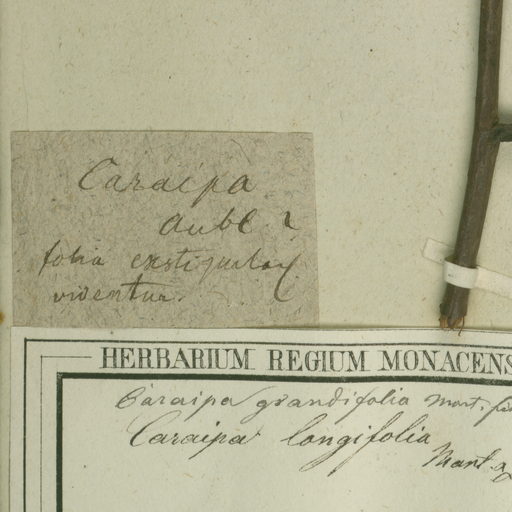 Caraipa
Aubl ?
folia exstipulax
videntur.
HERBARIUM REGIUM MONACENS
Caraipa grandifolia Mart.
Caraipa longifolia
Mart.